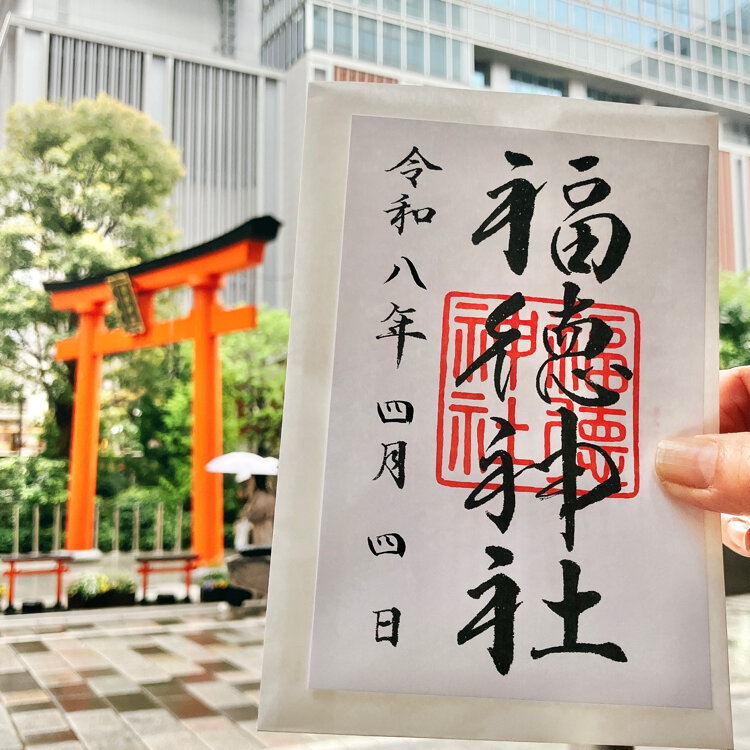 福徳神社
福徳神社
令和八年 四月 四日